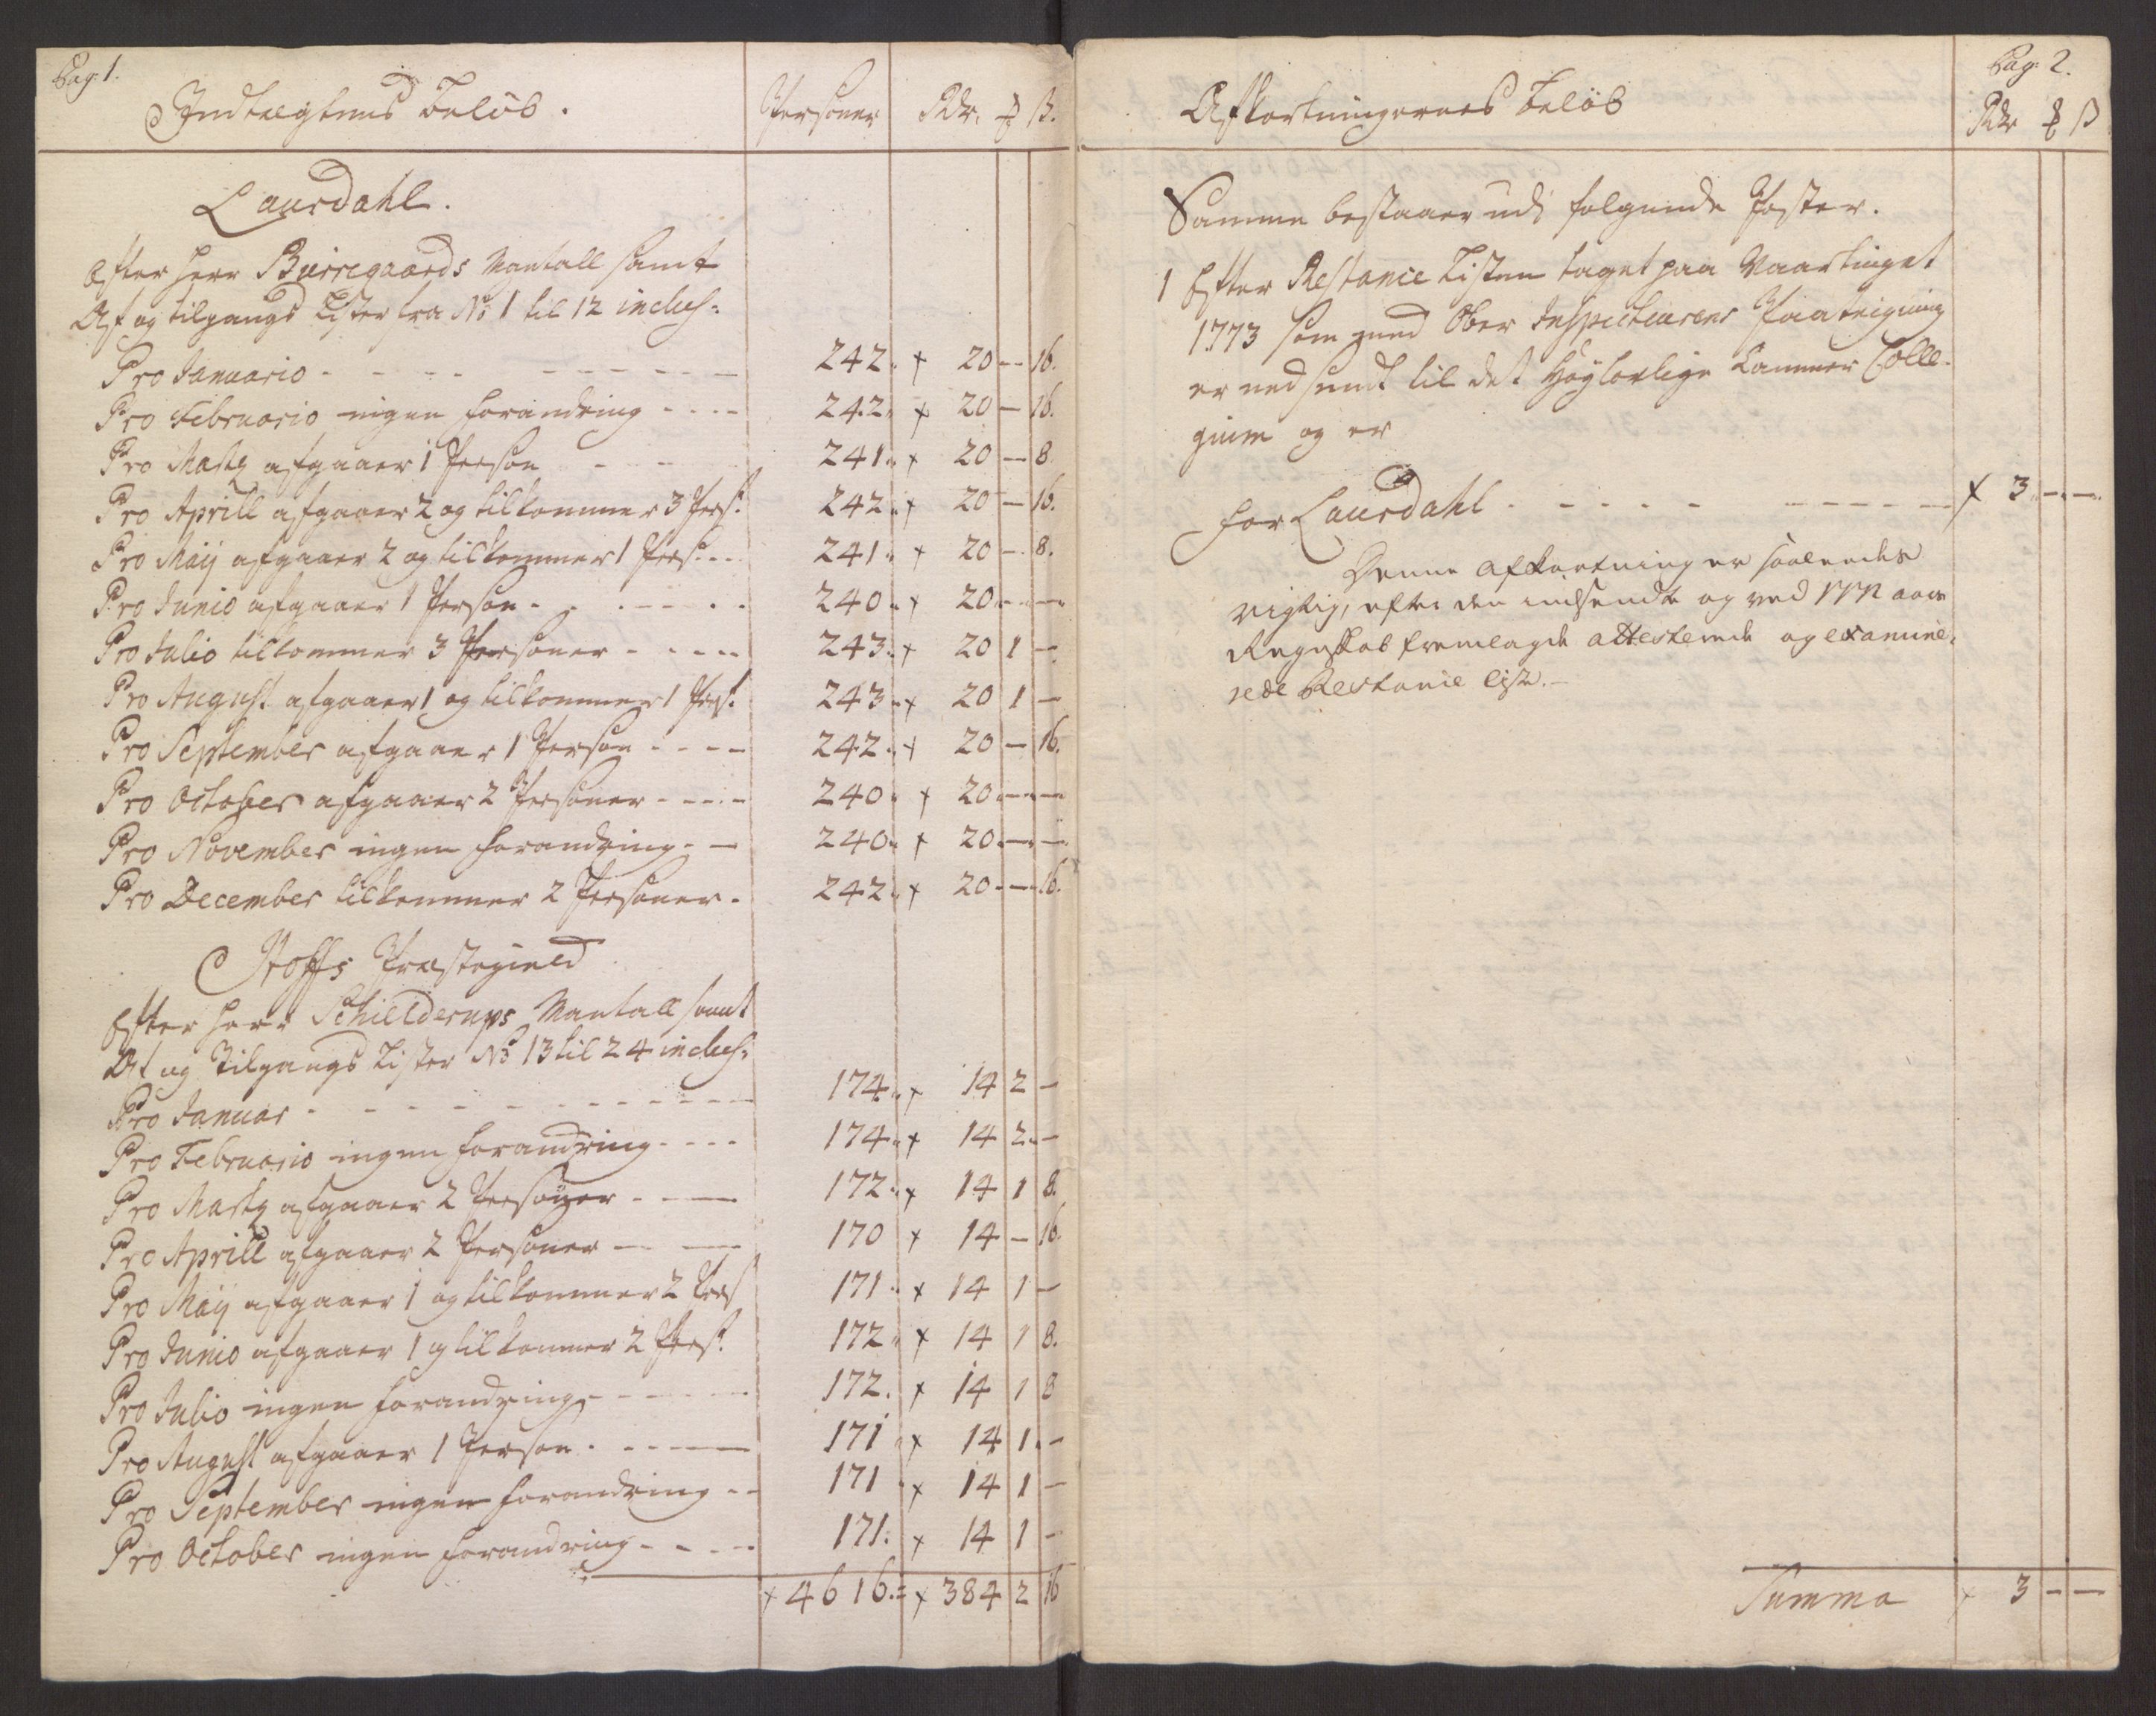 Pag: 1.
Indtægtens Beløb.
Personer Rdr. ß.
Laurdahl.
Efter Herr Bursegaards Mantall samt
Af og tilgangs Lister fra No 1 til 12 inclus:
Pro Januario - - - - 242. 20 - 16.
Pro Februario ingen forandring - - - 242. 20 - 16.
Pro Marty afgaaer 1 Person - - - 241. 20 - 8
Pro Aprill afgaaer 2 og tilkommer 3 Pers: 242. 20 - 16.
Pro Maij afgaaer 2 og tilkommer 1 Pers: 241. 20 - 8.
Pro Junio afgaaer 1 Person - - - 240. 20 - -
Pro Julio tilkommer 3 Personer - - - 243. 20 1 -
Pro August afgaaer 1 og tilkommer 1 Pers: 243. 20 1 -
Pro September afgaaer 1 Person - - - 242. 20 - 16.
Pro October afgaaer 2 Personer - - - 240. 20 - -
Pro November ingen forandring - - 240. 20 - -
Pro December tilkommer 2 Personer. 242. 20 - 16.
Hoffs Præstegield
Efter Herr Schielderups Mantall samt
Af og Tilgangs Lister No 13 til 24 inclus:
Pro Januar - - - - 174. 14 2 -
Pro Februario ingen forandring - - - 174. 14 2 -
Pro Marty afgaaer 2 Personer - - - 172. 14 1 8.
Pro Aprill afgaaer 2 Personer - - 170 14 - 16.
Pro Maij afgaaer 1 og tilkommer 2 Pers 171. 14 1 -
Pro Junio afgaaer 1 og tilkommer 2 Pers: 172. 14 1 8.
Pro Julio ingen forandring - - - 172. 14 1 8
Pro August afgaaer 1 Person - - - 171 14 1 -
Pro September ingen forandring - - 171 14 1 -
Pro October ingen forandring - - - 171. 14 1 -
4616. 384 2 16
Pag: 2.
Afkortningernes Beløb
Rdr ß
Samme bestaaer udi følgende Poster.
1 Efter Restance Listen taget paa Vaartinget
1773 som med Ober Inspecteurens Paategning
er nedsendt til det Høylovlige Cammer Colle-
gium og er
for Laurdahl - - - - 3 - -
Denne Afkortning er saaledes
rigtig, efter den indsendte og ved aars
Regnskab fremlagde attesterede og examine-
rede Restance liste.
Summa 3 - -